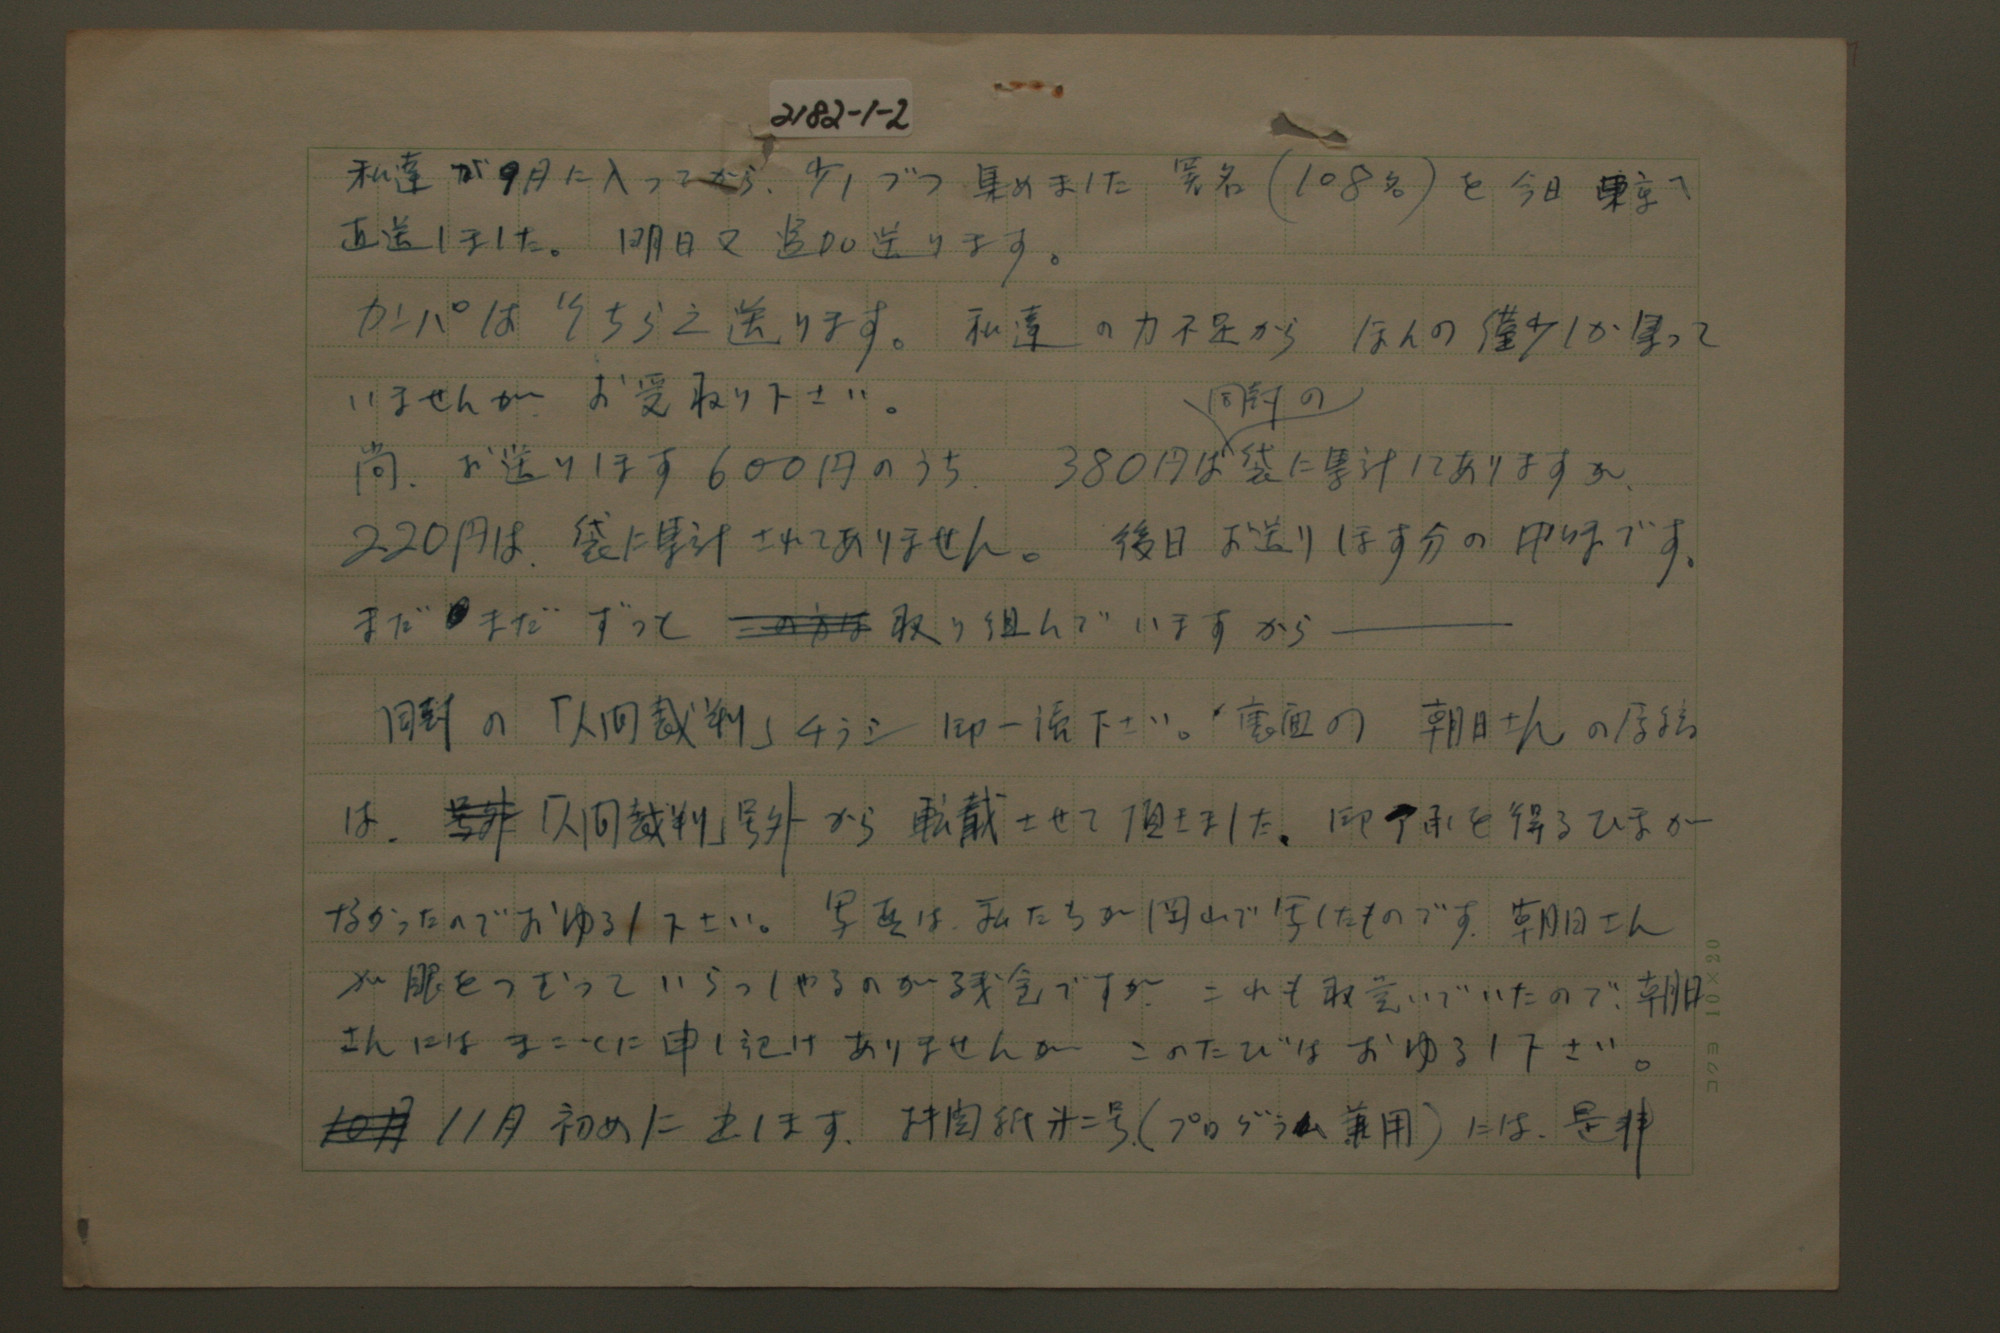 2182-1-2
私達が9月に入ってから、少しづつ集めました署名(108名)を今日東京へ
直送しました。明日又追加送ります。
カンパはそちらえ送ります。私達の力不足からほんの僅少しか集って
いませんが、お受取り下さい。
同封の
尚、お送りします600円のうち、380円は袋に累計してありますが、
220円は、袋に累計されてありません。後日お送りします分の内です。
まだまだずっと 取り組んでいますから――
同封の「人間裁判」チラシ御一読下さい。裏面の朝日さんの原稿
は、号外「人間裁判」号外から転載させて頂きました。御了承を得るひまが
なかったのでおゆるし下さい。写真は、私たちが岡山で写したものです。朝日さん
が眼をつむっていらっしゃるのが残念ですが、これも取急いでいたので、朝日
さんにはまことに申し訳けありませんが このたびはおゆるし下さい。
10月 11月初めに出します、 機関紙第二号(プログラム兼用)には、是非
コクヨ 10×20